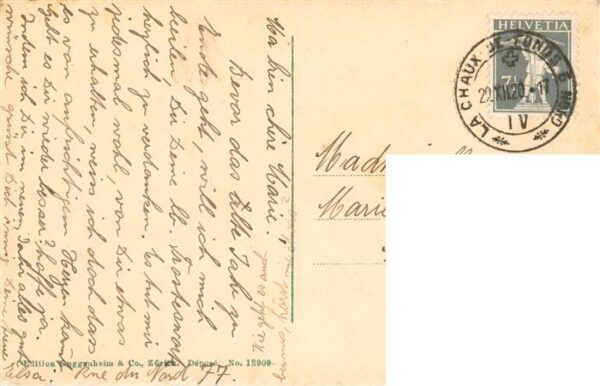 Ma bien chère Marie!
Bevor das alte Jahr zu
Ende geht, will ich mich
beeilen, Dir Deine lb. Trostesworte
herzlich zu verdanken. Es tut mir
jedesmal wohl, von Dir etwas
zu erhalten, wenn ich doch das
so von aufrichtigem Herzen kommt
Geht es Dir wieder besser? hoffe ja.
Indem ich Dir im neuen Jahr alles gute
wünsche grüsst Dich innig Deine treue
Elsa. Rue du Nord 77.
Edition Guggenheim & Co., Zürich. Déposé. No. 12909
HELVETIA
7½
LA CHAUX-DE-FONDS 6
22.XII.20.-17
IV
Marie